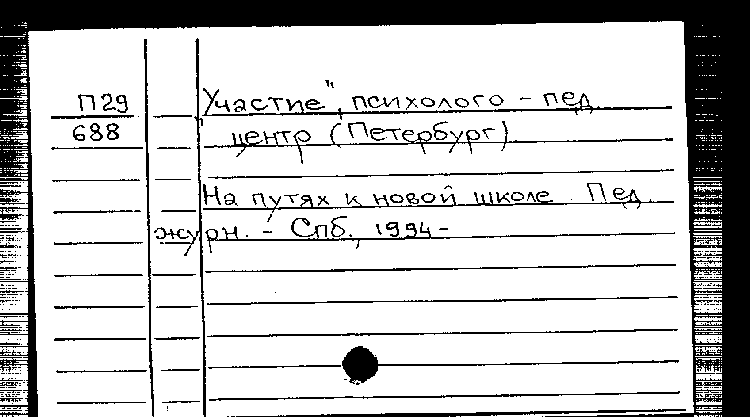 П29 Участие", психолого - пед.
688 центр (Петербург)
На путях к новой школе Пед.
журн. - Спб., 1994 -